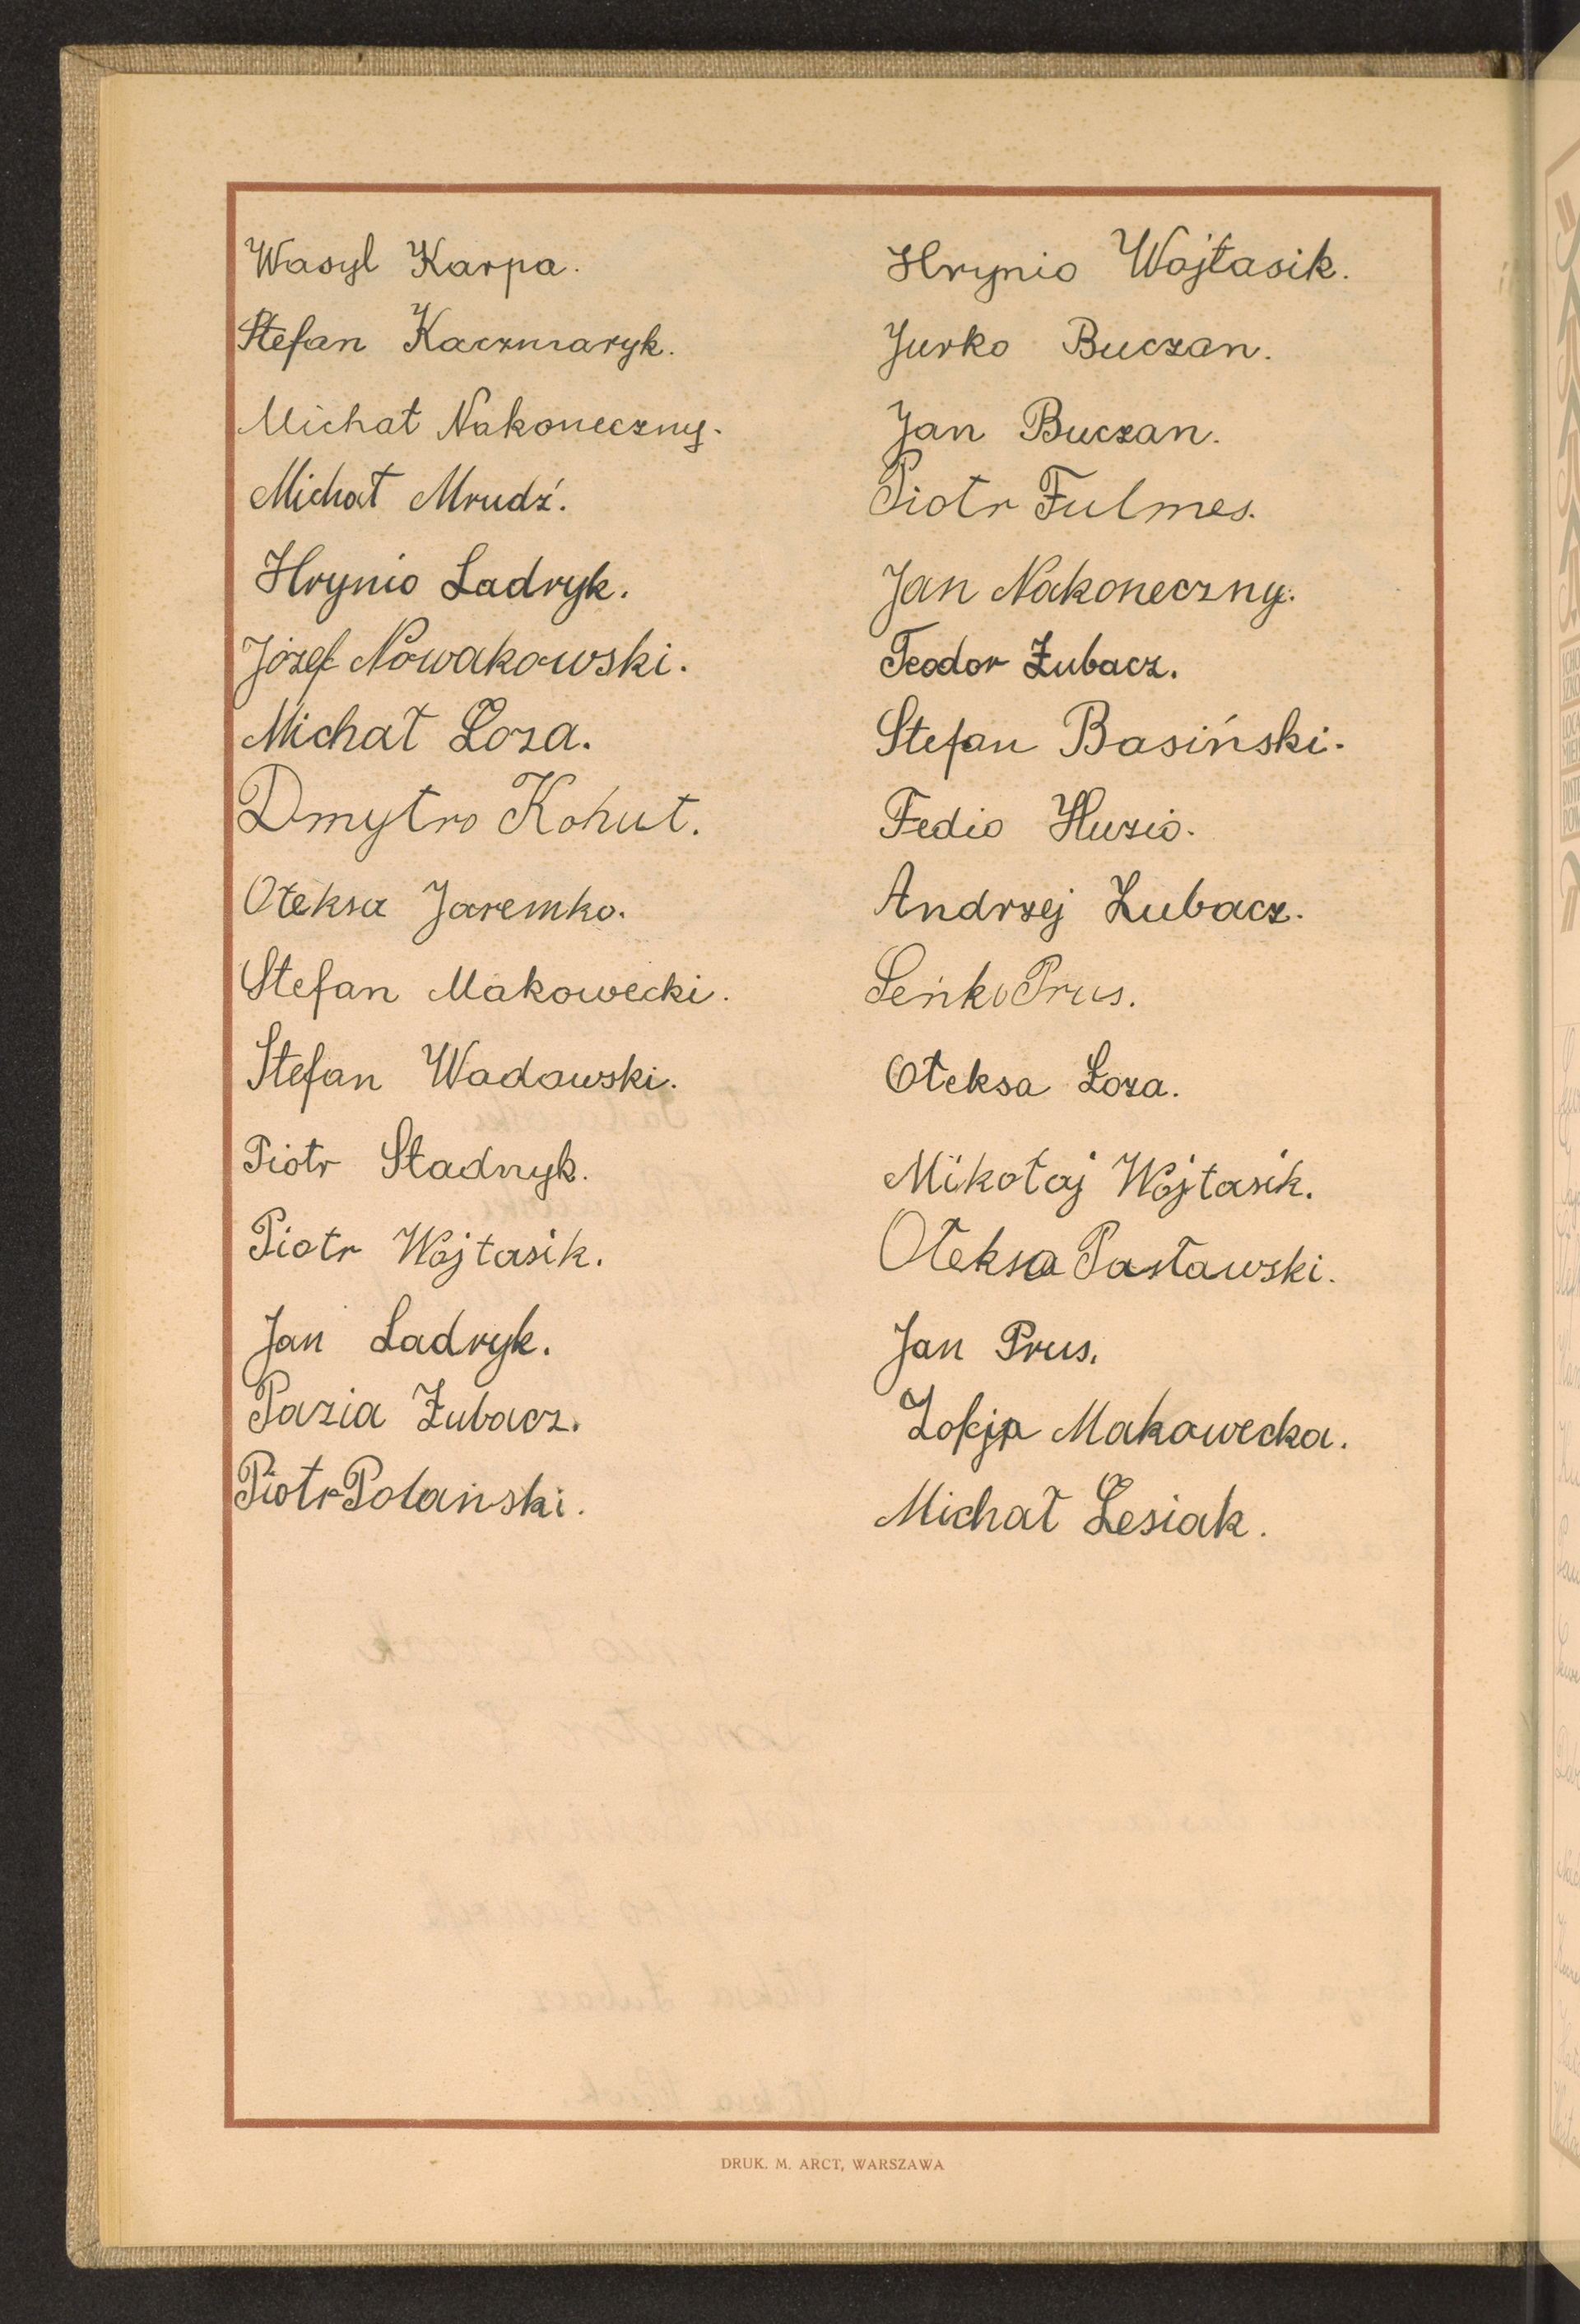 Wasyl Karpa.
Stefan Kaczmaryk.
Michał Nakoneczny.
Michał Mrudź.
Hrynio Ladryk.
Józef Nowakowski.
Michał Łoza.
Dmytro Kohut.
Ołeksa Jaremko.
Stefan Makowecki.
Stefan Wadowski.
Piotr Stadnyk.
Piotr Wojtasik.
Jan Ladryk.
Pazia Żubacz.
Piotr Polański.
Hrynio Wojtasik.
Jurko Buczan.
Jan Buczan.
Piotr Fulmes.
Jan Nakoneczny.
Teodor Żubacz.
Stefan Basiński.
Fedio Huzio.
Andrzej Żubacz.
Seńko Prus.
Ołeksa Łoza.
Mikołaj Wojtasik.
Ołeksa Pasławski.
Jan Prus.
Zofja Makowecka.
Michał Lesiak.
DRUK. M. ARCT, WARSZAWA